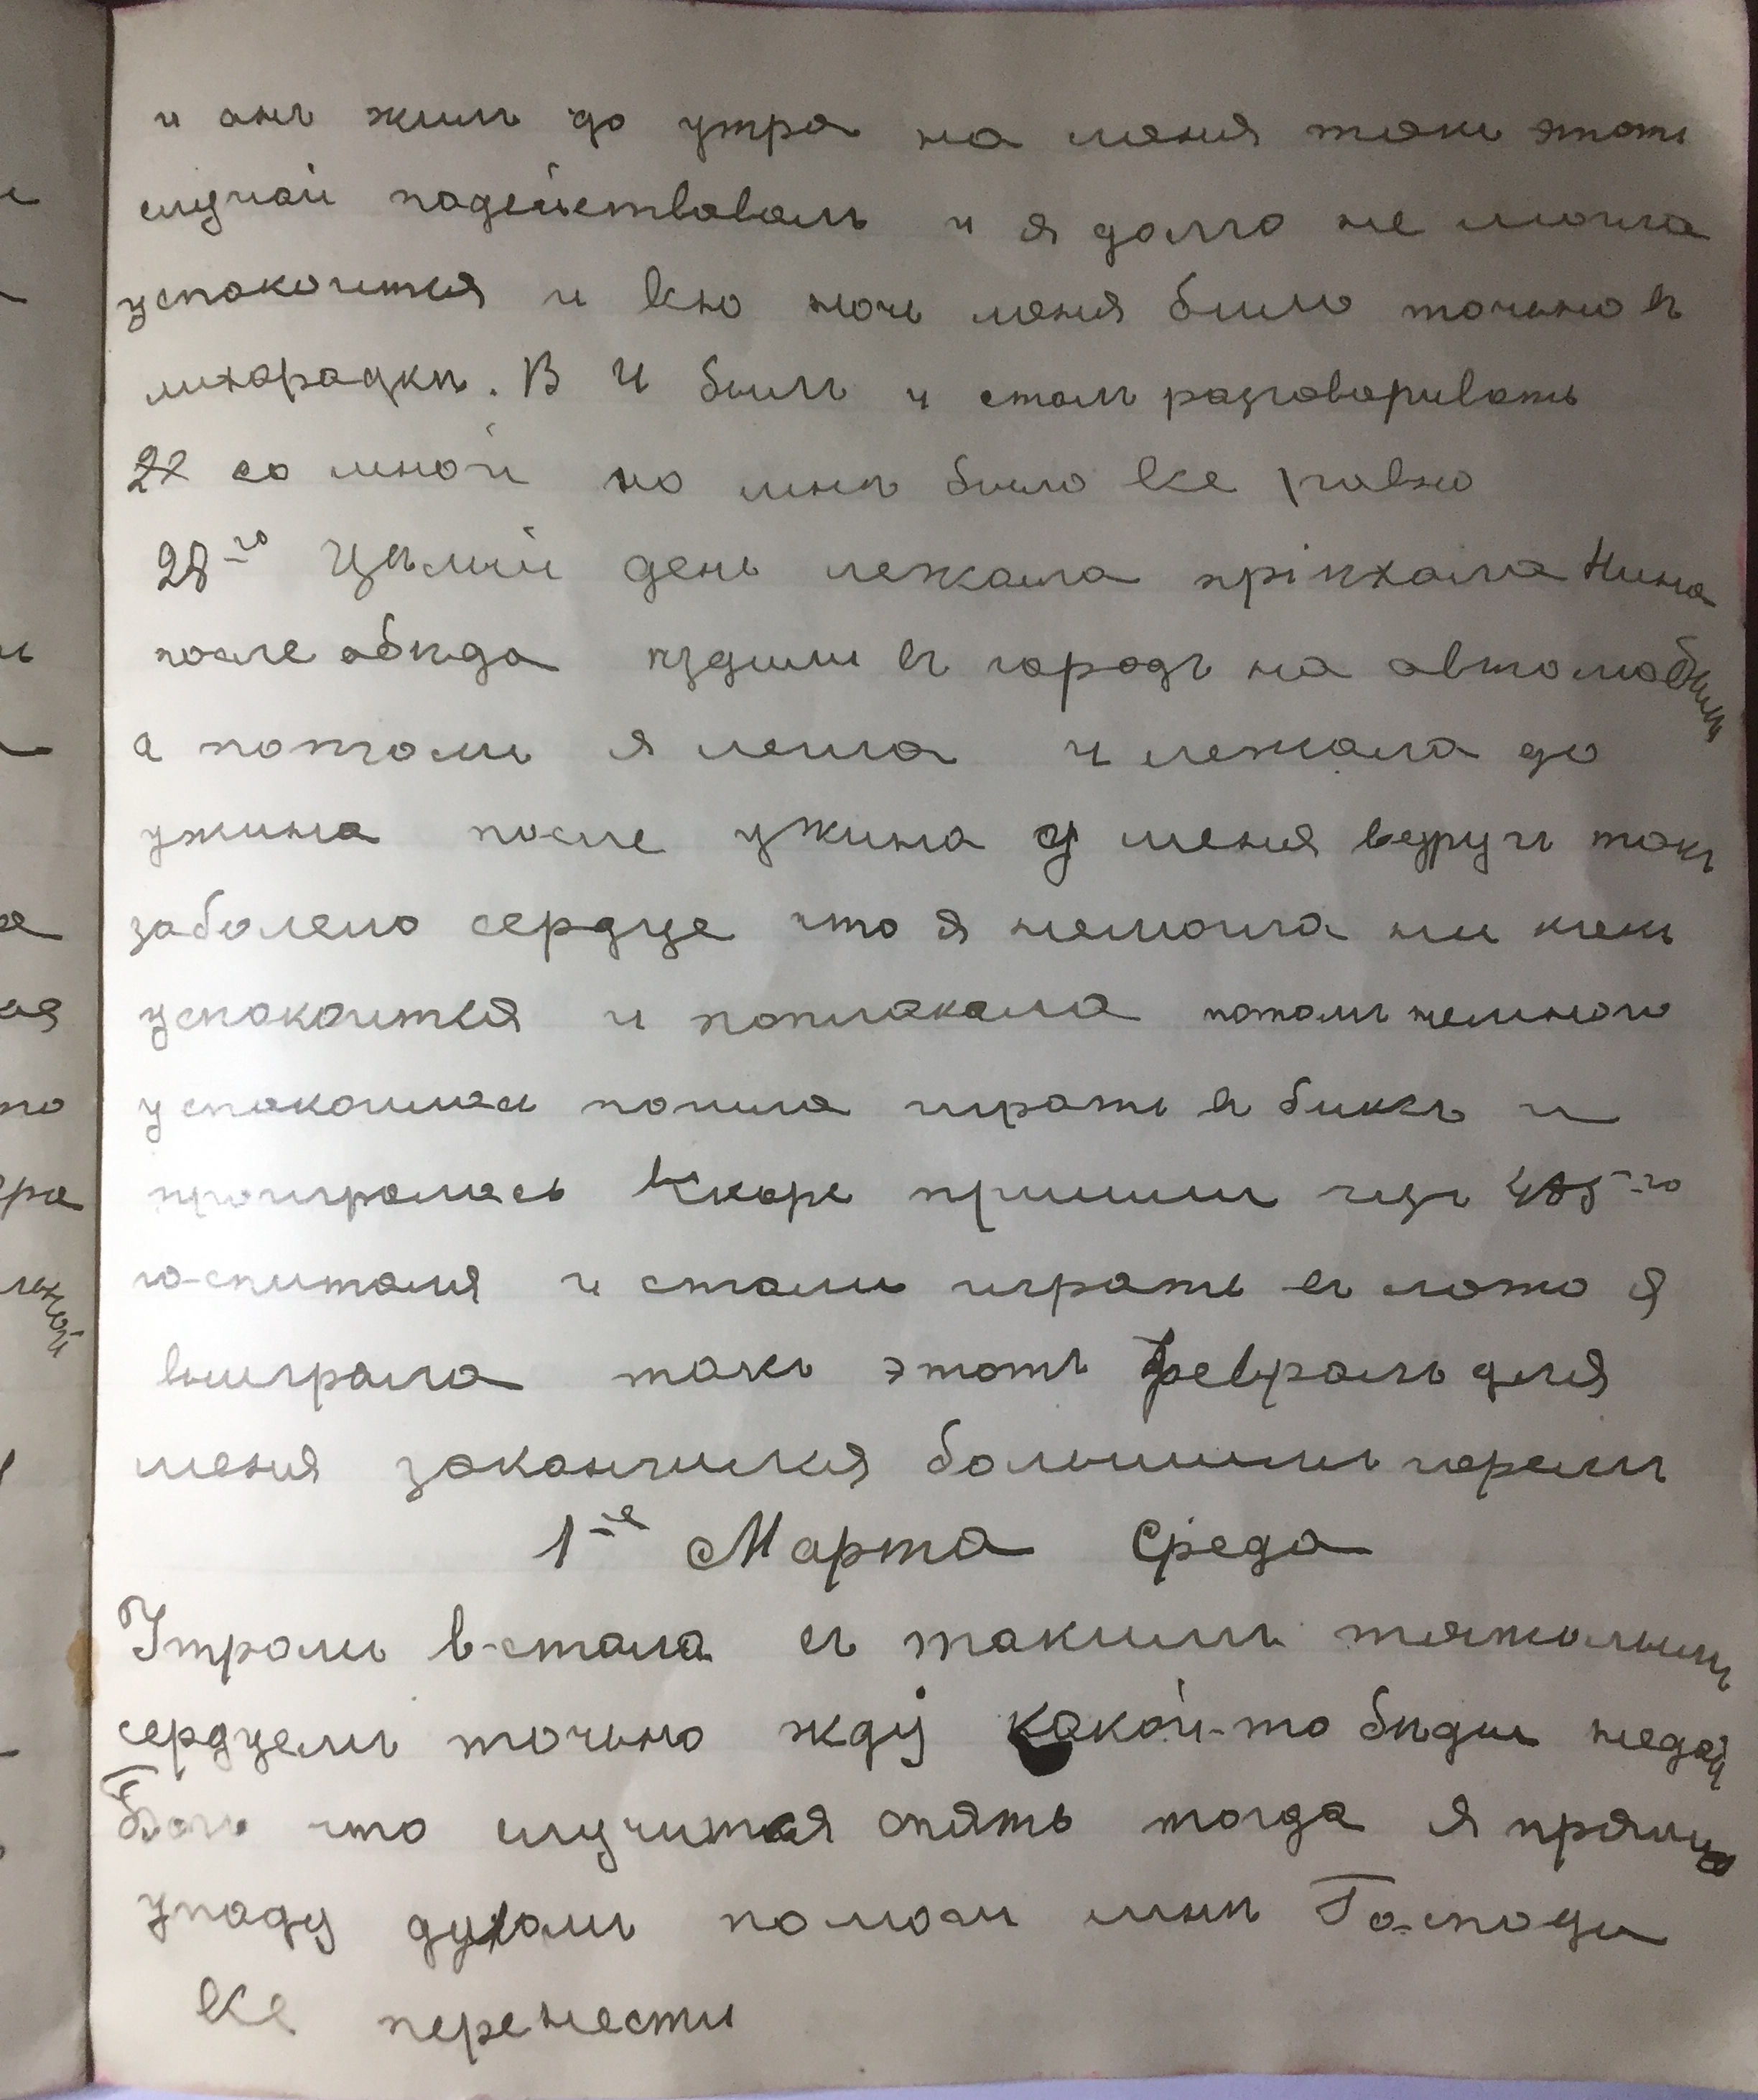 и онъ жилъ до утра на меня такъ этотъ
случай подействовалъ и я долго не могла
успокоится и всю ночь меня било точьно въ
лихорадкѣ. В И былъ и сталъ разговоривать
22 со мной но мнѣ было все равно
28-го Цѣлый день лежала пріѣхала Нина
после обѣда ѣздили въ городъ на автомобиль
а потомъ я легла и лежала до
ужина после ужина у меня вдругъ такъ
заболело сердце что я немогла ни какъ
успокоится и поплакала потомъ немного
успокоилась пошла играть въ биксъ и
проигралась Вскоре пришли изъ 485-го
госпиталя и стали играть въ лото я
выиграла такъ этотъ Февраль для
меня закончился большимъ горемъ
1-ое Марта Среда
Утромъ в-стала съ такимъ тяжолымъ
сердцемъ точьно жду какой-то бѣды недай
Богъ что случится опять тогда я прямо
упаду духомъ помоги мнѣ Господи
все перенести